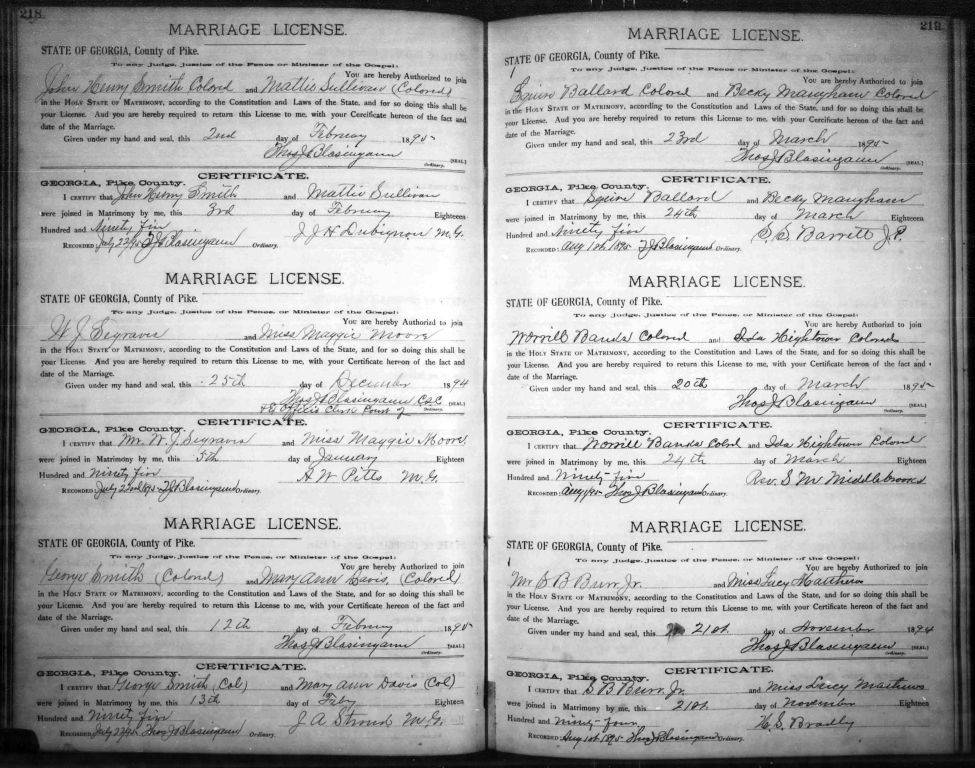 218.
MARRIAGE LICENSE.
STATE OF GEORGIA, County of Pike.
To any Judge, Justice of the Peace or Minister of the Gospel:
You are hereby Authorized to join
John Henry Smith Colord and Mattie Sullivan (Colored)
in the Holy State of Matrimony, according to the Constitution and Laws of the State, and for so doing this shall be
your License. And you are hereby required to return this License to me, with your Cercificate hereon of the fact and
date of the Marriage.
Given under my hand and seal, this 2nd day of February 1895
Thos J Blasingame [SEAL]
Ordinary.
CERTIFICATE.
GEORGIA, Pike County.
I certify that John Henry Smith and Mattie Sullivan
were joined in Matrimony by me, this 3rd day of February Eighteen
Hundred and Ninety five J J H Dubignon M.G.
Recorded: July 23/95 T J Blasingame Ordinary.
MARRIAGE LICENSE.
STATE OF GEORGIA, County of Pike.
To any Judge, Justice of the Peace, or Minister of the Gospel:
You are hereby Authorized to join
W. J. Segravis and Miss Maggie Moore
in the Holy State of Matrimony, according to the Constitution and Laws of the State, and for so doing this shall be
your License. And you are hereby required to return this License to me, with your Certificate hereon of the fact and
date of the Marriage.
Given under my hand and seal, this 25th day of December 1894
Thos J Blasingame C.S.C [SEAL]
Ordinary.
CERTIFICATE.
GEORGIA, Pike County.
I certify that Mr. W. J. Segravis and Miss Maggie Moore
were joined in Matrimony by me, this 5th day of January Eighteen
Hundred and Ninety five A W Pitts M.G.
Recorded: July 23rd 1895 T J Blasingame Ordinary.
MARRIAGE LICENSE.
STATE OF GEORGIA, County of Pike.
To any Judge, Justice of the Peace, or Minister of the Gospel:
You are hereby Authorized to join
George Smith (Colored) and Mary Ann Davis, (Colored)
in the Holy State of Matrimony, according to the Constitution and Laws of the State, and for so doing this shall be
your License. And you are hereby required to return this License to me, with your Certificate hereon of the fact and
date of the Marriage.
Given under my hand and seal, this 12th day of February 1895
Thos J Blasingame [SEAL]
Ordinary.
CERTIFICATE.
GEORGIA, Pike County.
I certify that George Smith (Col) and Mary Ann Davis (Col)
were joined in Matrimony by me, this 13th day of Feby Eighteen
Hundred and Ninety five J A Stroud M.G.
Recorded: July 23/95 Thos J Blasingame Ordinary.
219.
MARRIAGE LICENSE.
STATE OF GEORGIA, County of Pike.
To any Judge, Justice of the Peace or Minister of the Gospel:
You are hereby Authorized to join
Squire Ballard Colord and Becky Maugham Colord
in the Holy State of Matrimony, according to the Constitution and Laws of the State, and for so doing this shall be
your License. And you are hereby required to return this License to me, with your Cercificate hereon of the fact and
date of the Marriage.
Given under my hand and seal, this 23rd day of March 1895
Thos J Blasingame [SEAL]
Ordinary.
CERTIFICATE.
GEORGIA, Pike County.
I certify that Squire Ballard and Becky Maugham
were joined in Matrimony by me, this 24th day of March Eighteen
Hundred and Ninety five S. S. Barrett J.P.
Recorded: Aug 1st 1895 T J Blasingame Ordinary.
MARRIAGE LICENSE.
STATE OF GEORGIA, County of Pike.
To any Judge, Justice of the Peace, or Minister of the Gospel:
You are hereby Authorized to join
Worrill Bands Colord and Ida Hightower Colored
in the Holy State of Matrimony, according to the Constitution and Laws of the State, and for so doing this shall be
your License. And you are hereby required to return this License to me, with your Certificate hereon of the fact and
date of the Marriage.
Given under my hand and seal, this 20th day of March 1895
Thos J Blasingame [SEAL]
Ordinary.
CERTIFICATE.
GEORGIA, Pike County.
I certify that Worrill Bands Colord and Ida Hightower Colord
were joined in Matrimony by me, this 24th day of March Eighteen
Hundred and Ninety-five Rev. S M Middlebrooks
Recorded: Aug 1/95 Thos J Blasingame Ordinary.
MARRIAGE LICENSE.
STATE OF GEORGIA, County of Pike.
To any Judge, Justice of the Peace, or Minister of the Gospel:
You are hereby Authorized to join
Mr. S B Burr, Jr. and Miss Lucy Matthews
in the Holy State of Matrimony, according to the Constitution and Laws of the State, and for so doing this shall be
your License. And you are hereby required to return this License to me, with your Certificate hereon of the fact and
date of the Marriage.
Given under my hand and seal, this 21st. day of November 1894
Thos J Blasingame [SEAL]
Ordinary.
CERTIFICATE.
GEORGIA, Pike County.
I certify that S B Burr, Jr. and Miss Lucy Matthews
were joined in Matrimony by me, this 21st. day of November Eighteen
Hundred and Ninety-four H. S. Bradly
Recorded: Aug 1st. 1895 Thos J Blasingame Ordinary.